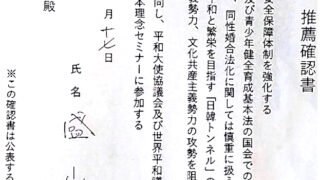 推薦確認書
安全保障体制を強化する
及び青少年健全育成基本法の国会での
、同性婚合法化に関しては慎重に扱う
和と繁栄を目指す「日韓トンネル」の
勢力、文化共産主義勢力の攻勢を阻
同し、平和大使協議会及び世界平和議
本理念セミナーに参加する
月十七日
氏名 盛山
殿
※この確認書は公表する